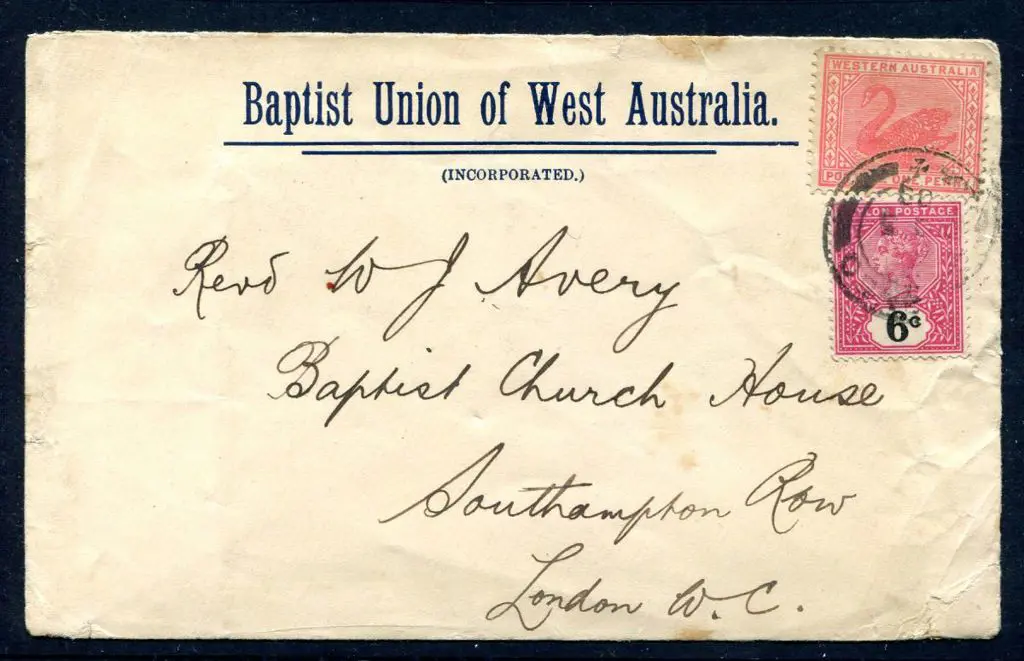 Baptist Union of West Australia.
(INCORPORATED.)
WESTERN AUSTRALIA
ONE PEN
LON POSTAGE
6c
Revd W J Avery
Baptist Church House
Southampton Row
London W.C.